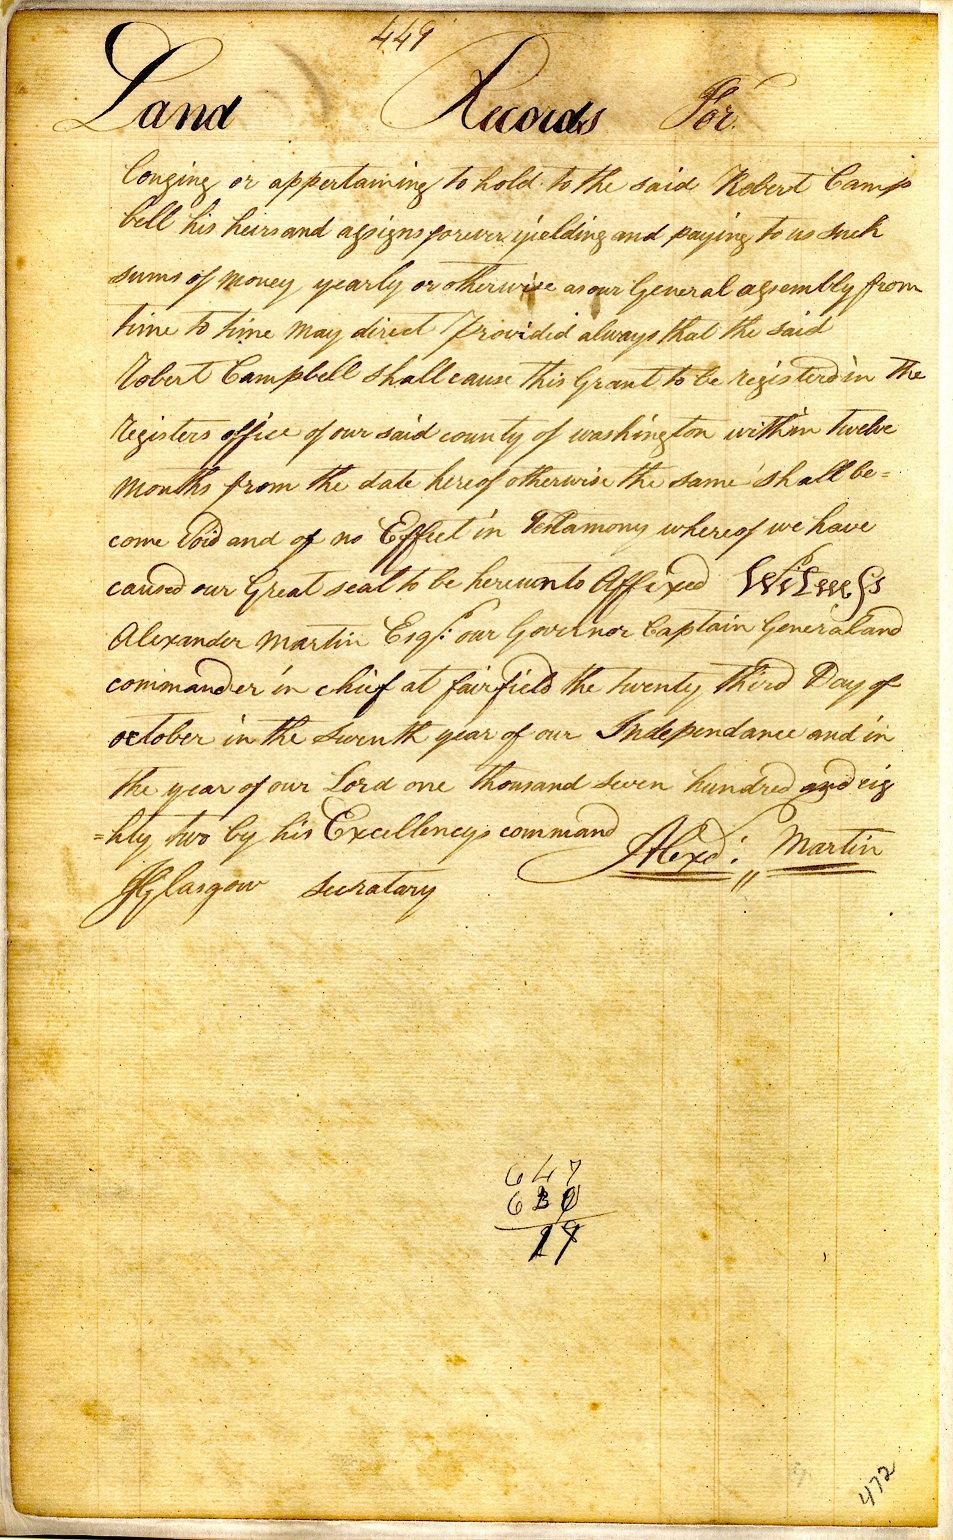 449
Land Records For
longing or appertaining to hold to the said Robert Camp
bell his heirs and assigns forever yielding and paying to us such
sums of money yearly or otherwise as our General assembly from
time to time may direct Provided always that the said
Robert Campbell shall cause this Grant to be registerd in the
Registers office of our said county of washington within twelve
months from the date hereof otherwise the same shall be=
come Void and of no Effect in Testamony whereof we have
caused our Great seal to be hereunto Affixed Witness
Alexander Martin Esqr: our Governor Captain General and
commander in chief at fairfield the twenty third Day of
october in the seventh year of our Independance and in
the year of our Lord one thousand seven hundred and eig
=hty two by his Excellencys command Alexd: Martin
JGlasgow secratary
647
472